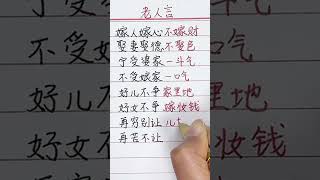 老人言
嫁人嫁心不嫁财
娶妻娶德不娶色
宁受婆家一斗气
不受娘家一口气
好儿不争家里地
好女不争嫁妆钱
再穷别让儿
再苦不让